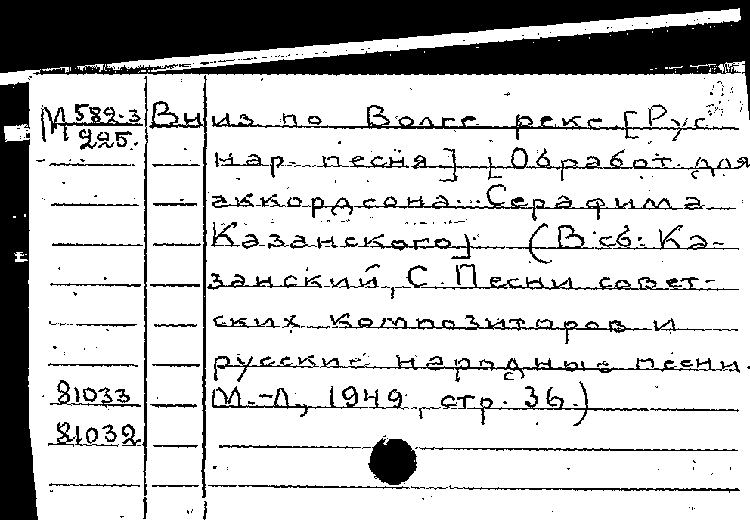 М 582-3 Вниз по Волге реке [Рус.
225. нар. песня] [Обработ. для
аккордеона Серафима
Казанского]. (В сб: Ка-
занский, С. Песни совет-
ских композиторов и
русские народные песни.
81033 М.-Л., 1949, стр. 36.)
81032